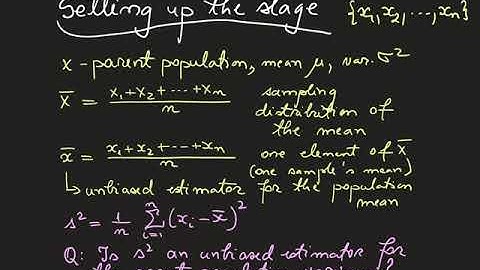 Setting up the stage {x₁, x₂, ..., xₙ}
x - parent population, mean μ, var. σ²
X̄ = (x₁ + x₂ + ... + xₙ)/n sampling distribution of the mean
x̄ = (x₁ + x₂ + ... + xₙ)/n one element of X̄ (one sample's mean)
↳ unbiased estimator for the population mean
s² = 1/n ∑ᵢ₌₁ⁿ (xᵢ - x̄)²
Q: Is s² an unbiased estimator for
the parent population variance?